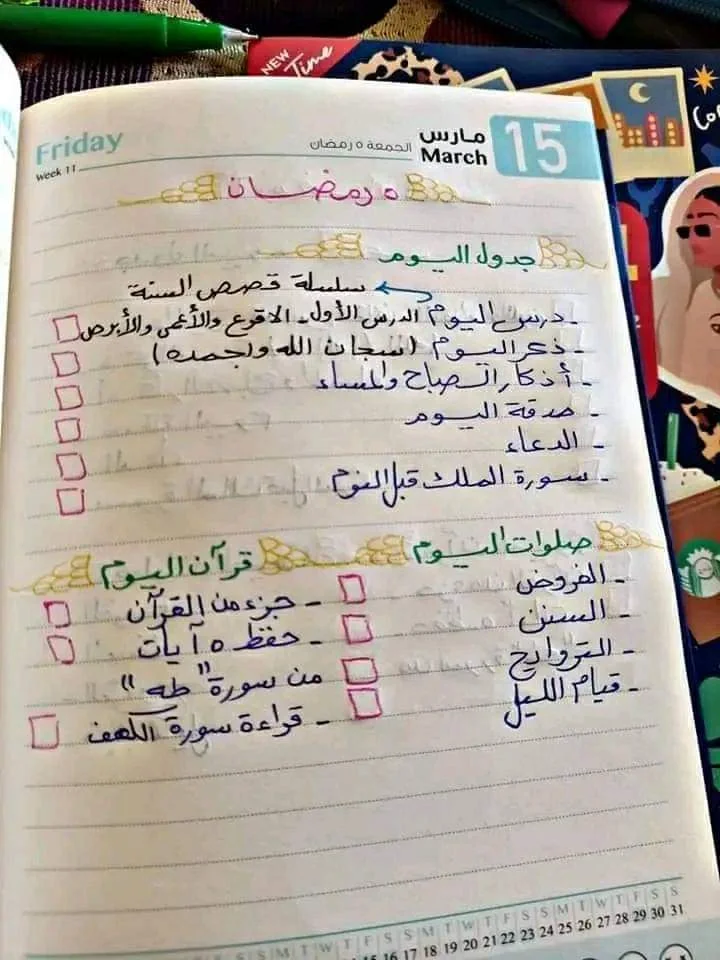 NEW
Time
Friday
Week 11
الجمعة ٥ رمضان
مارس
March
15
٥ رمضان
جدول اليوم
سلسلة قصص السنة
- درس اليوم الدرس الأول - الاقرع والأعمى والأبرص
- ذكر اليوم (سبحان الله وبحمده)
- أذكار الصباح والمساء
- صدقة اليوم
- الدعاء
- سورة الملك قبل النوم
صلوات اليوم
- الفروض
- السنن
- التروايح
- قيام الليل
قرآن اليوم
- جزء من القرآن
- حفظ ٥ آيات
من سورة "طه"
- قراءة سورة الكهف
S S M T W T F S S M T W T F S S M T W T F S S
15 16 17 18 19 20 21 22 23 24 25 26 27 28 29 30 31